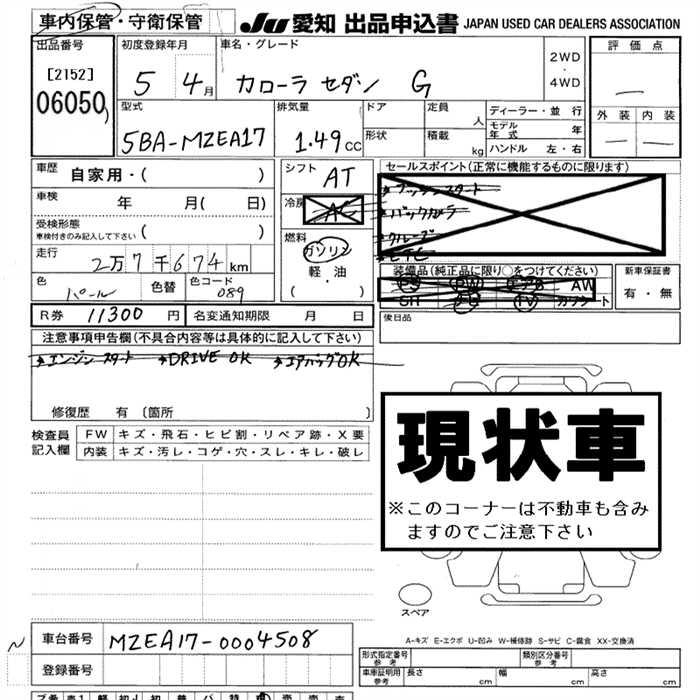 車内保管・守衛保管
JU 愛知 出品申込書 JAPAN USED CAR DEALERS ASSOCIATION
出品番号
[2152]
06050
初度登録年月
5 4月
車名・グレード
カローラ セダン G
2WD
・
4WD
評価点
外装 内装
型式
5BA-MZEA17
排気量
1.49cc
ドア
形状
定員 人
積載 kg
ディーラー・並行
モデル年式 年
ハンドル 左・右
車歴
自家用・( )
車検
年 月( 日)
受検形態
車検付きのみ記入して下さい ( )
走行
2万7千674km
色
パール
色替
色コード
089
シフト
AT
冷房
AC
燃料
ガソリン
軽・油
( )
セールスポイント(正常に機能するものに限ります)
プッシュスタート
バックカメラ
クルーズ
ETC
装備品(純正品に限り○をつけてください)
PS PW エアB AW
SR ナビ TV カワシート
新車保証書
有・無
後日品
R券 11300円 名変通知期限 月 日
注意事項申告欄(不具合内容等は具体的に記入して下さい)
→エンジンスタート →DRIVE OK →エアバッグOK
修復歴 有〔箇所 〕
検査員記入欄
FW キズ・飛石・ヒビ割・リペア跡・X要
内装 キズ・汚レ・コゲ・穴・スレ・キレ・破レ
現状車
※このコーナーは不動車も含み
ますのでご注意下さい
スペア
A-キズ E-エクボ U-凹み W-補修跡 S-サビ C-腐食 XX-交換済
車台番号 MZEA17-0004508
登録番号
形式指定番号 参考
類別区分番号 参考
車庫証明用 参考
長さ cm 幅 cm 高さ cm